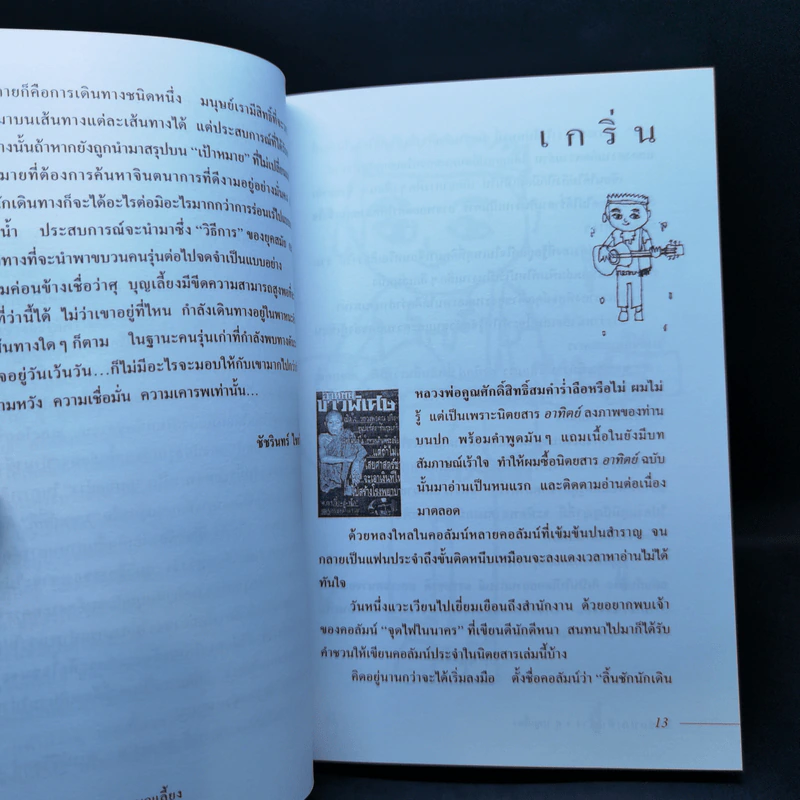 ายก็คือการเดินทางชนิดหนึ่ง มนุษย์เรามีสิทธิ์ที่
มาบนเส้นทางแต่ละเส้นทางได้ แต่ประสบการณ์ที่ได้
างนั้นถ้าหากยังถูกนำมาสรุปบน “เป้าหมาย” ที่ไม่เปลี่ยน
มายที่ต้องการค้นหาจินตนาการที่ดีงามอยู่อย่างมั่น
นักเดินทางก็จะได้อะไรต่อมิอะไรมากกว่าการร่อนเร่ไป
น้ำ ประสบการณ์จะนำมาซึ่ง “วิธีการ” ของยุคสมัย
ทางที่จะนำพาขบวนคนรุ่นต่อไปจดจำเป็นแบบอย่าง
มค่อนข้างเชื่อว่าศุ บุญเลี้ยงมีขีดความสามารถสูงพอ
ที่ว่านี้ได้ ไม่ว่าเขาอยู่ที่ไหน กำลังเดินทางอยู่ในพาหนะ
ส้นทางใดๆ ก็ตาม ในฐานะคนรุ่นเก่าที่กำลังพบทาง
ใจอยู่วันเว้นวัน...ก็ไม่มีอะไรจะมอบให้กับเขามากไปกว่า
ามหวัง ความเชื่อมั่น ความเคารพเท่านั้น...
ชัชรินทร์ ไช
ญเลี้ยง
เกริ่น
อาทิตย์
ข่าวพิเศษ
หลวงพ่อคูณศักดิ์สิทธิ์สมคำร่ำลือหรือไม่ ผมไม่
รู้ แต่เป็นเพราะนิตยสาร อาทิตย์ ลงภาพของท่าน
บนปก พร้อมคำพูดมันๆ แถมเนื้อในยังมีบท
สัมภาษณ์เร้าใจ ทำให้ผมซื้อนิตยสาร อาทิตย์ ฉบับ
นั้นมาอ่านเป็นหนแรก และติดตามอ่านต่อเนื่อง
มาตลอด
ด้วยหลงใหลในคอลัมน์หลายคอลัมน์ที่เข้มข้นปนสำราญ จน
กลายเป็นแฟนประจำถึงขั้นติดหนึบเหมือนจะลงแดงเวลาหาอ่านไม่ได้
ทันใจ
วันหนึ่งแวะเวียนไปเยี่ยมเยือนถึงสำนักงาน ด้วยอยากพบเจ้า
ของคอลัมน์ “จุดไฟในนาคร” ที่เขียนดีนักดีหนา สนทนาไปมาก็ได้รับ
คำชวนให้เขียนคอลัมน์ประจำในนิตยสารเล่มนี้บ้าง
คิดอยู่นานกว่าจะได้เริ่มลงมือ ตั้งชื่อคอลัมน์ว่า “ลิ้นชักนักเดิน
13